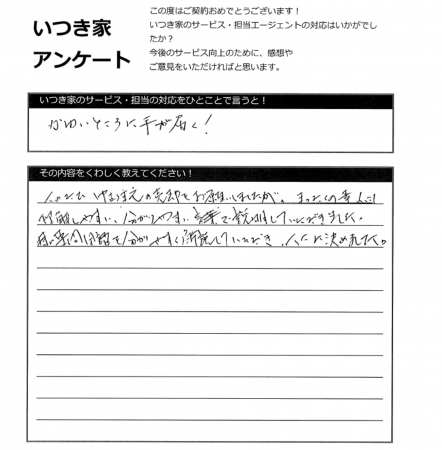 いつき家
アンケート
この度はご契約おめでとうございます！
いつき家のサービス・担当エージェントの対応はいかがでし
たか？
今後のサービス向上のために、感想や
ご意見をいただければと思います。
いつき家のサービス・担当の対応をひとことで言うと！
かゆいところに手が届く！
その内容をくわしく教えてください！
の売却をお願いしましたが、まったくの素人に
理解しやすい、分かりやすい言葉で説明していただきました。
分かりやすく説明していただき、に決めました。